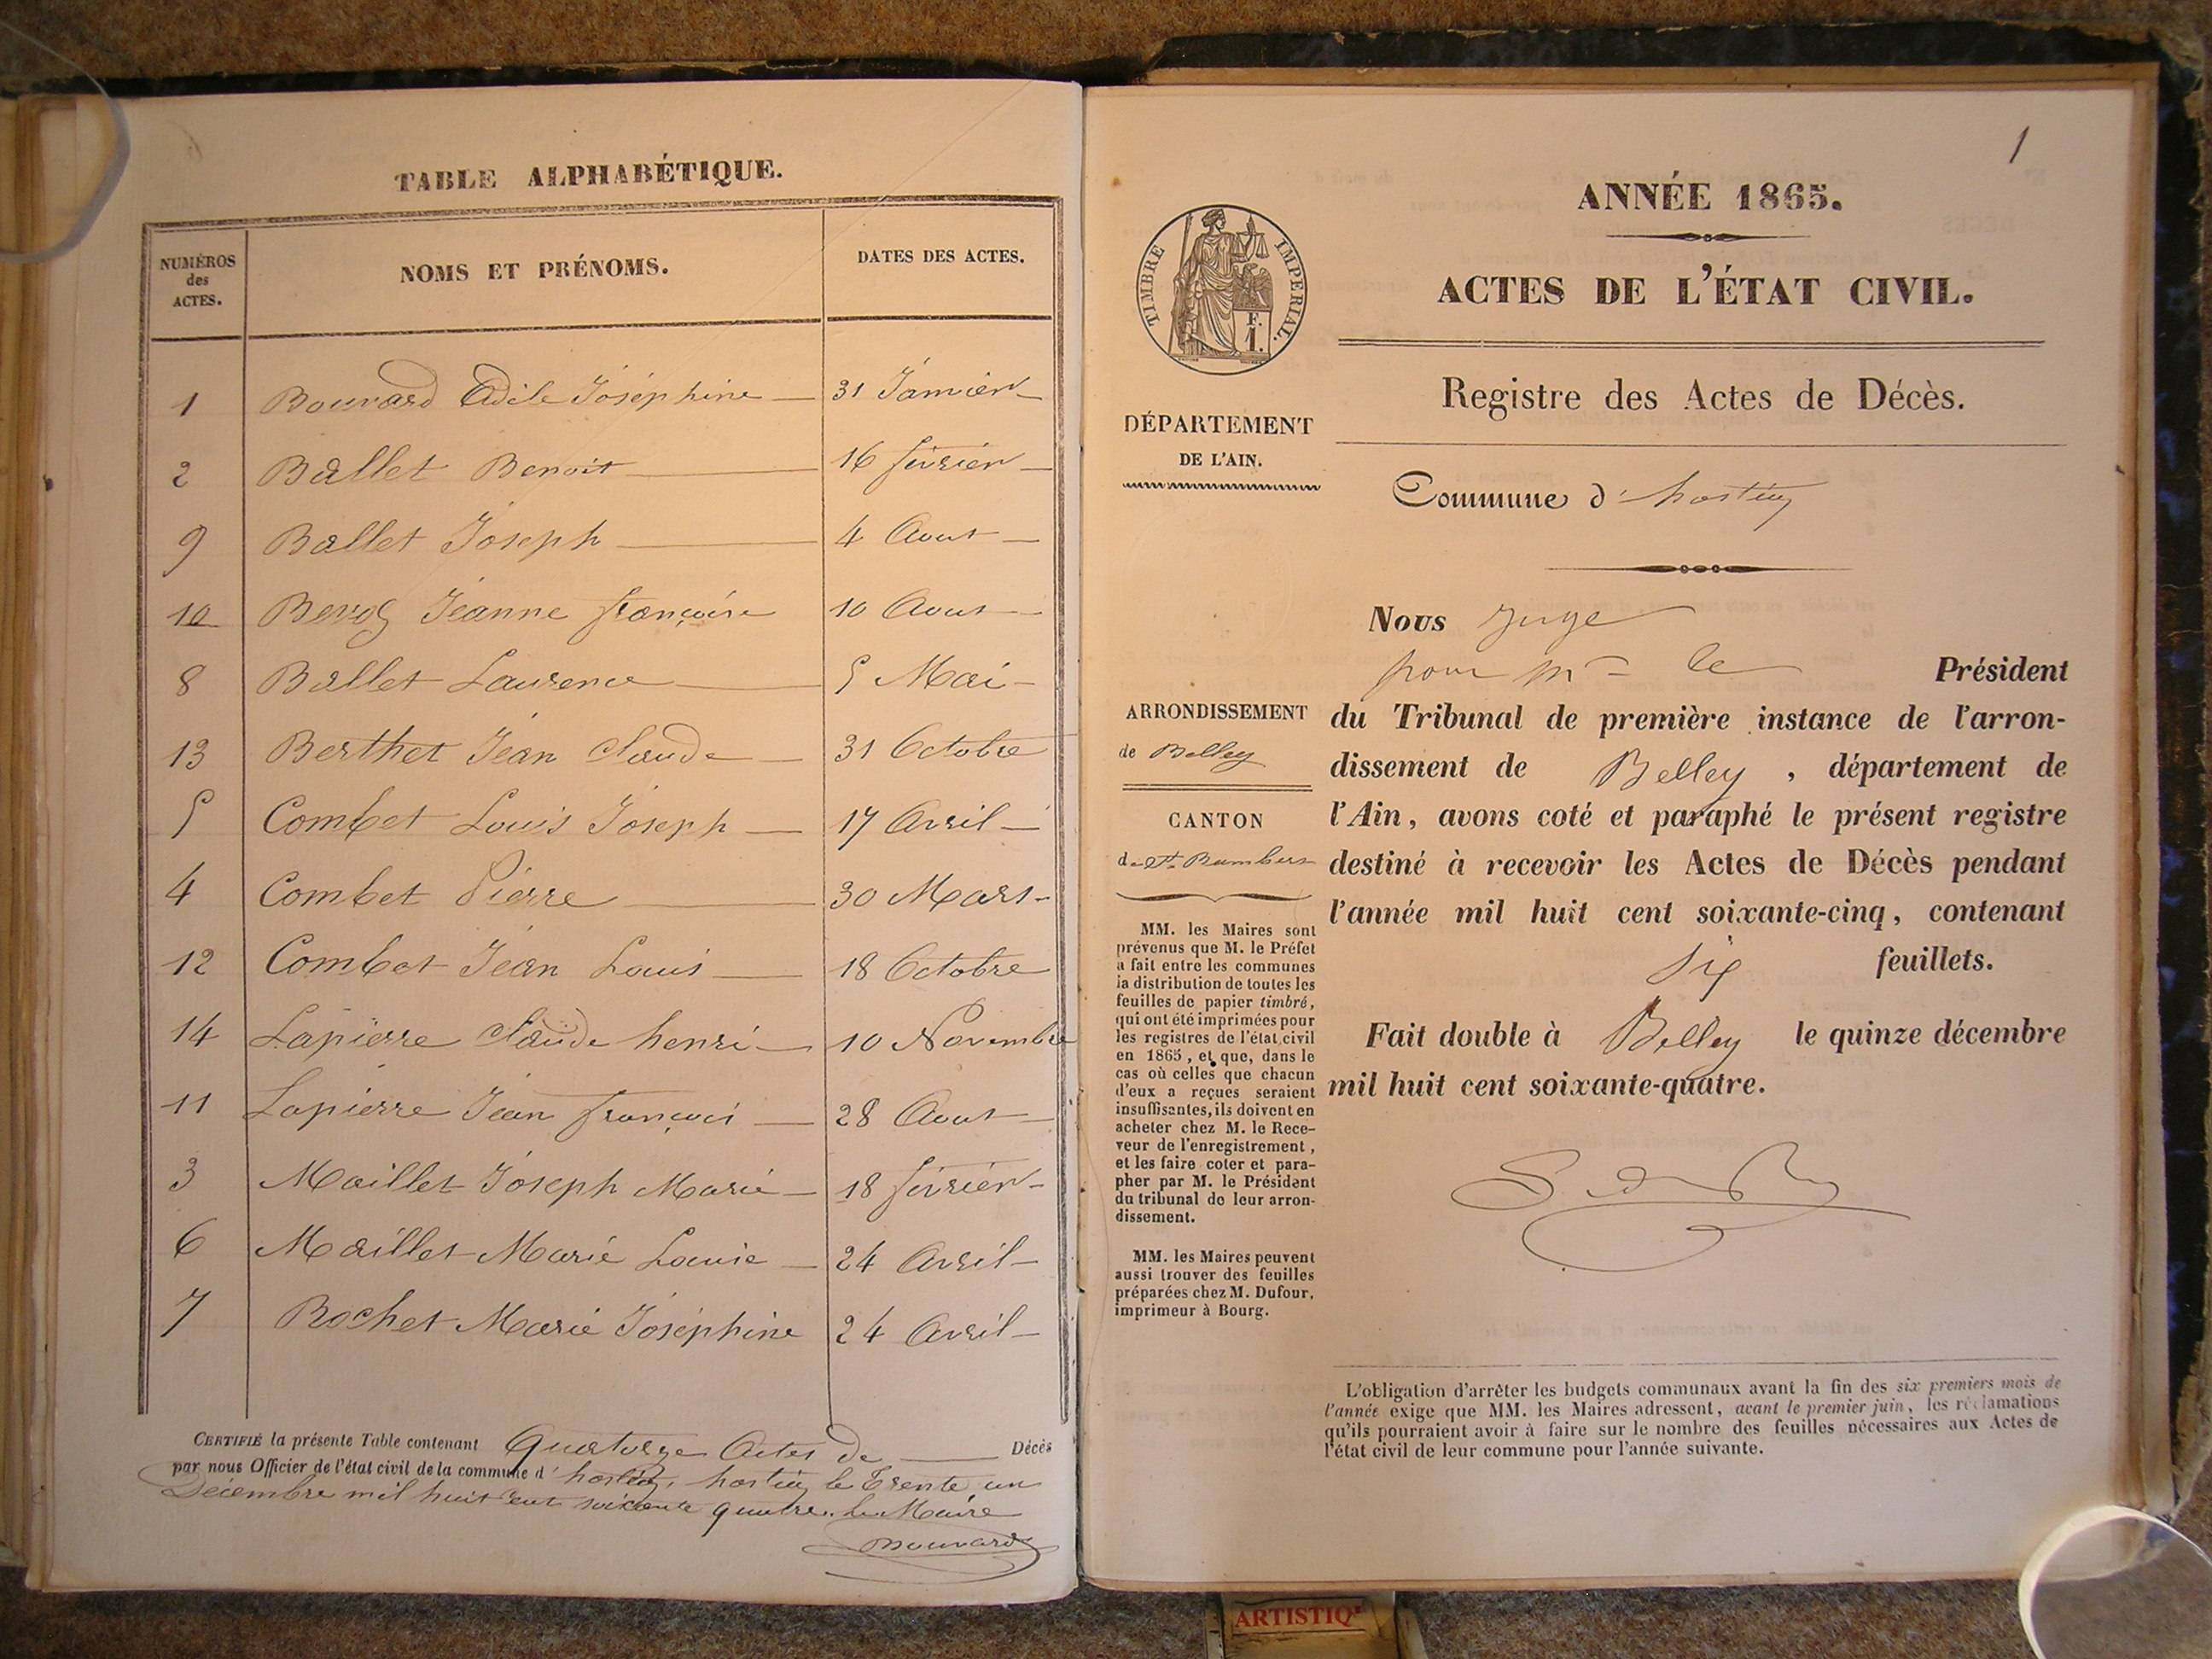 TABLE ALPHABÉTIQUE.
NUMÉROS des ACTES.
NOMS ET PRÉNOMS.
DATES DES ACTES.
1 Bouvard Adèle Joséphine 31 Janvier
2 Ballet Benoit 16 févrièr
9 Ballet Joseph 4 Aout
10 Jéanne françoise 10 Aout
8 Ballet Laurence 5 Mai
13 Berthet Jéan Claude 31 Octobre
5 Combet Louis Joseph 17 Avril
4 Combet Pierre 30 Mars
12 Combet Jéan Louis 18 Octobre
14 Lapierre Claude henri 10 Novembre
11 Lapierre Jéan françois 28 Aout
3 Maillet Joseph Marie 18 févrièr
6 Maillet Marie Louise 24 Avril
7 Rochet Marie Joséphine 24 Avril
CERTIFIÉ la présente Table contenant Quatorze Actes de Décès
par nous Officier de l'état civil de la commune d' hostiaz, hostiaz le Trente un
Décembre mil huit cent soixante quatre. Le Maire
Bouvard
1
ANNÉE 1865.
ACTES DE L'ÉTAT CIVIL.
Registre des Actes de Décès.
Commune d' hostiaz
Nous Juge
pour Mr le Président
du Tribunal de première instance de l'arron-
dissement de Belley, département de
l'Ain, avons coté et paraphé le présent registre
destiné à recevoir les Actes de Décès pendant
l'année mil huit cent soixante-cinq, contenant
six feuillets.
Fait double à Belley le quinze décembre
mil huit cent soixante-quatre.
TIMBRE IMPÉRIAL.
F.
1.
DÉPARTEMENT
DE L'AIN.
ARRONDISSEMENT
de Belley
CANTON
de St Rambert
MM. les Maires sont
prévenus que M. le Préfet
a fait entre les communes
la distribution de toutes les
feuilles de papier timbré,
qui ont été imprimées pour
les registres de l'état civil
en 1865, et que, dans le
cas où celles que chacun
d'eux a reçues seraient
insuffisantes, ils doivent en
acheter chez M. le Rece-
veur de l'enregistrement,
et les faire coter et para-
pher par M. le Président
du tribunal de leur arron-
dissement.
MM. les Maires peuvent
aussi trouver des feuilles
préparées chez M. Dufour,
imprimeur à Bourg.
L'obligation d'arrêter les budgets communaux avant la fin des six premiers mois de
l'année exige que MM. les Maires adressent, avant le premier juin, les réclamations
qu'ils pourraient avoir à faire sur le nombre des feuilles nécessaires aux Actes de
l'état civil de leur commune pour l'année suivante.
ARTISTIQ